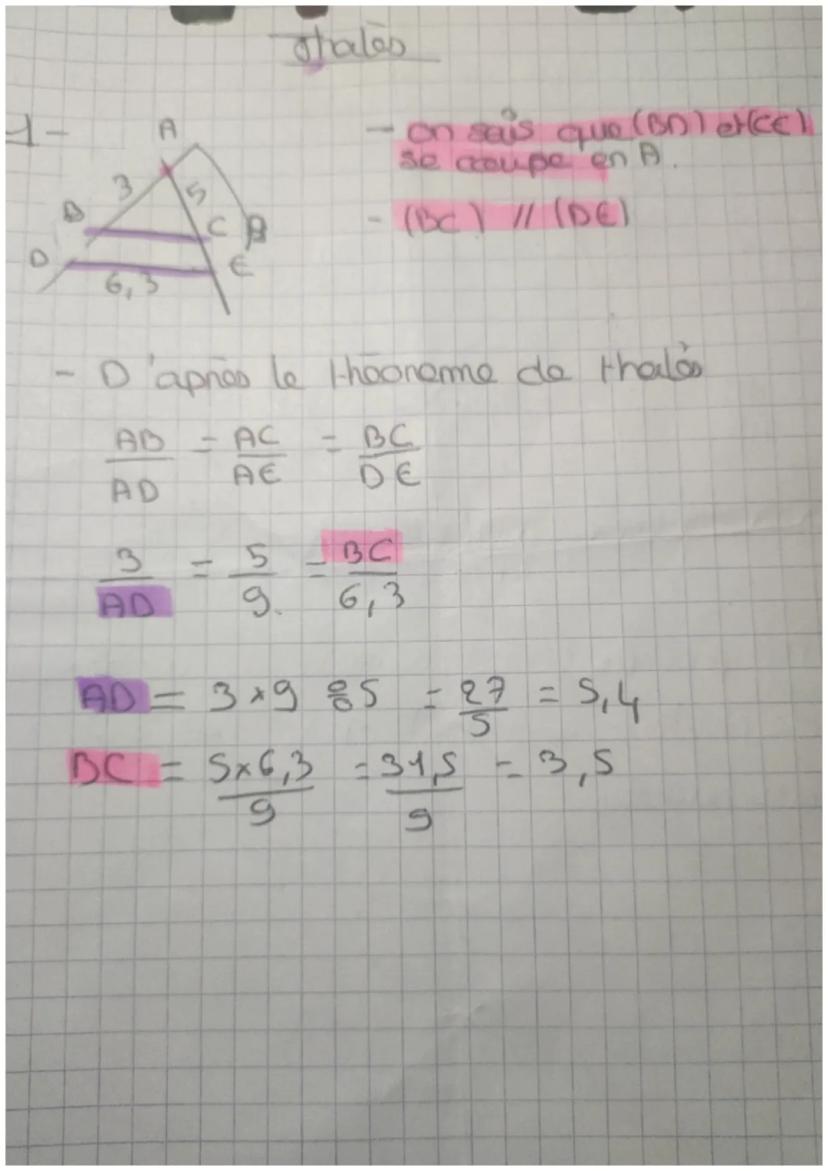 Thalès
1-
A
3
5
B
C
D
E
6,3
- on sais que (BD) et (CE)
se coupe en A.
- (BC) // (DE)
- D'après le théoreme de thalès
AB/AD = AC/AE = BC/DE
3/AD = 5/9. = BC/6,3
AD = 3×9 : 5 = 27/5 = 5,4
BC = 5×6,3/9 = 31,5/9 = 3,5